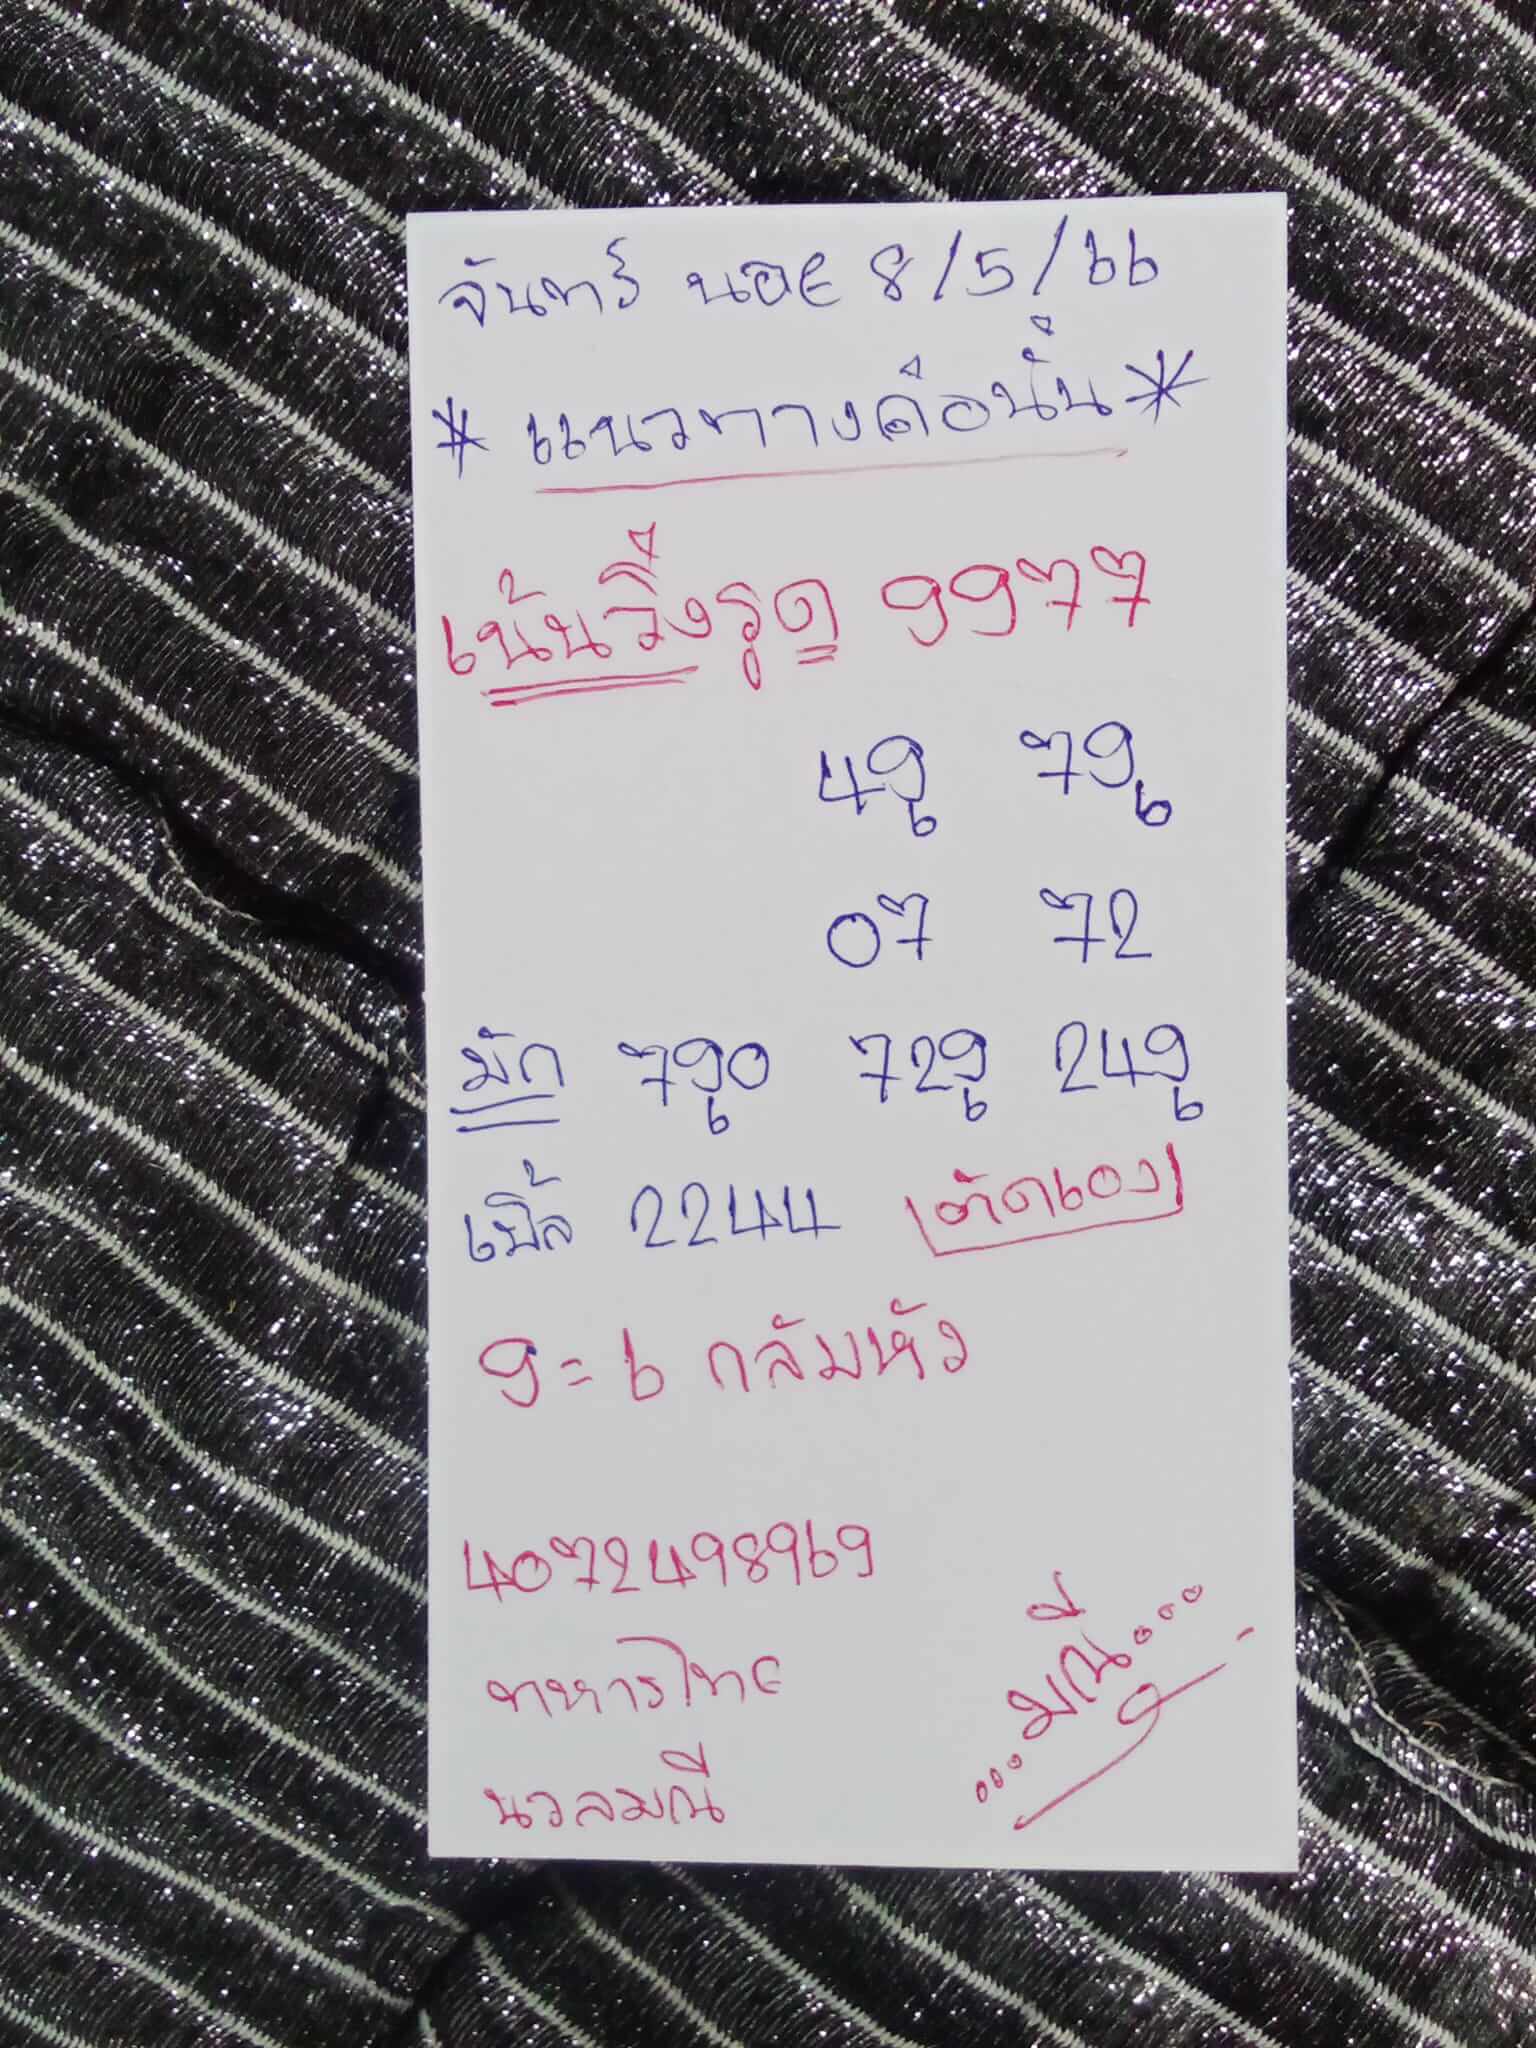 จันทร์ นอย 8/5/66
* แนวทางคือนั้น *
เน้นวิ่งรูด 9977
49 6 79 6
07 72
มัก 7960 729 6 249 6
เบิ้ล 2244 ตัดเอง
9=6 กลัมหัว
4072498969
ทหารไทย
นวลมณี
...มณี...